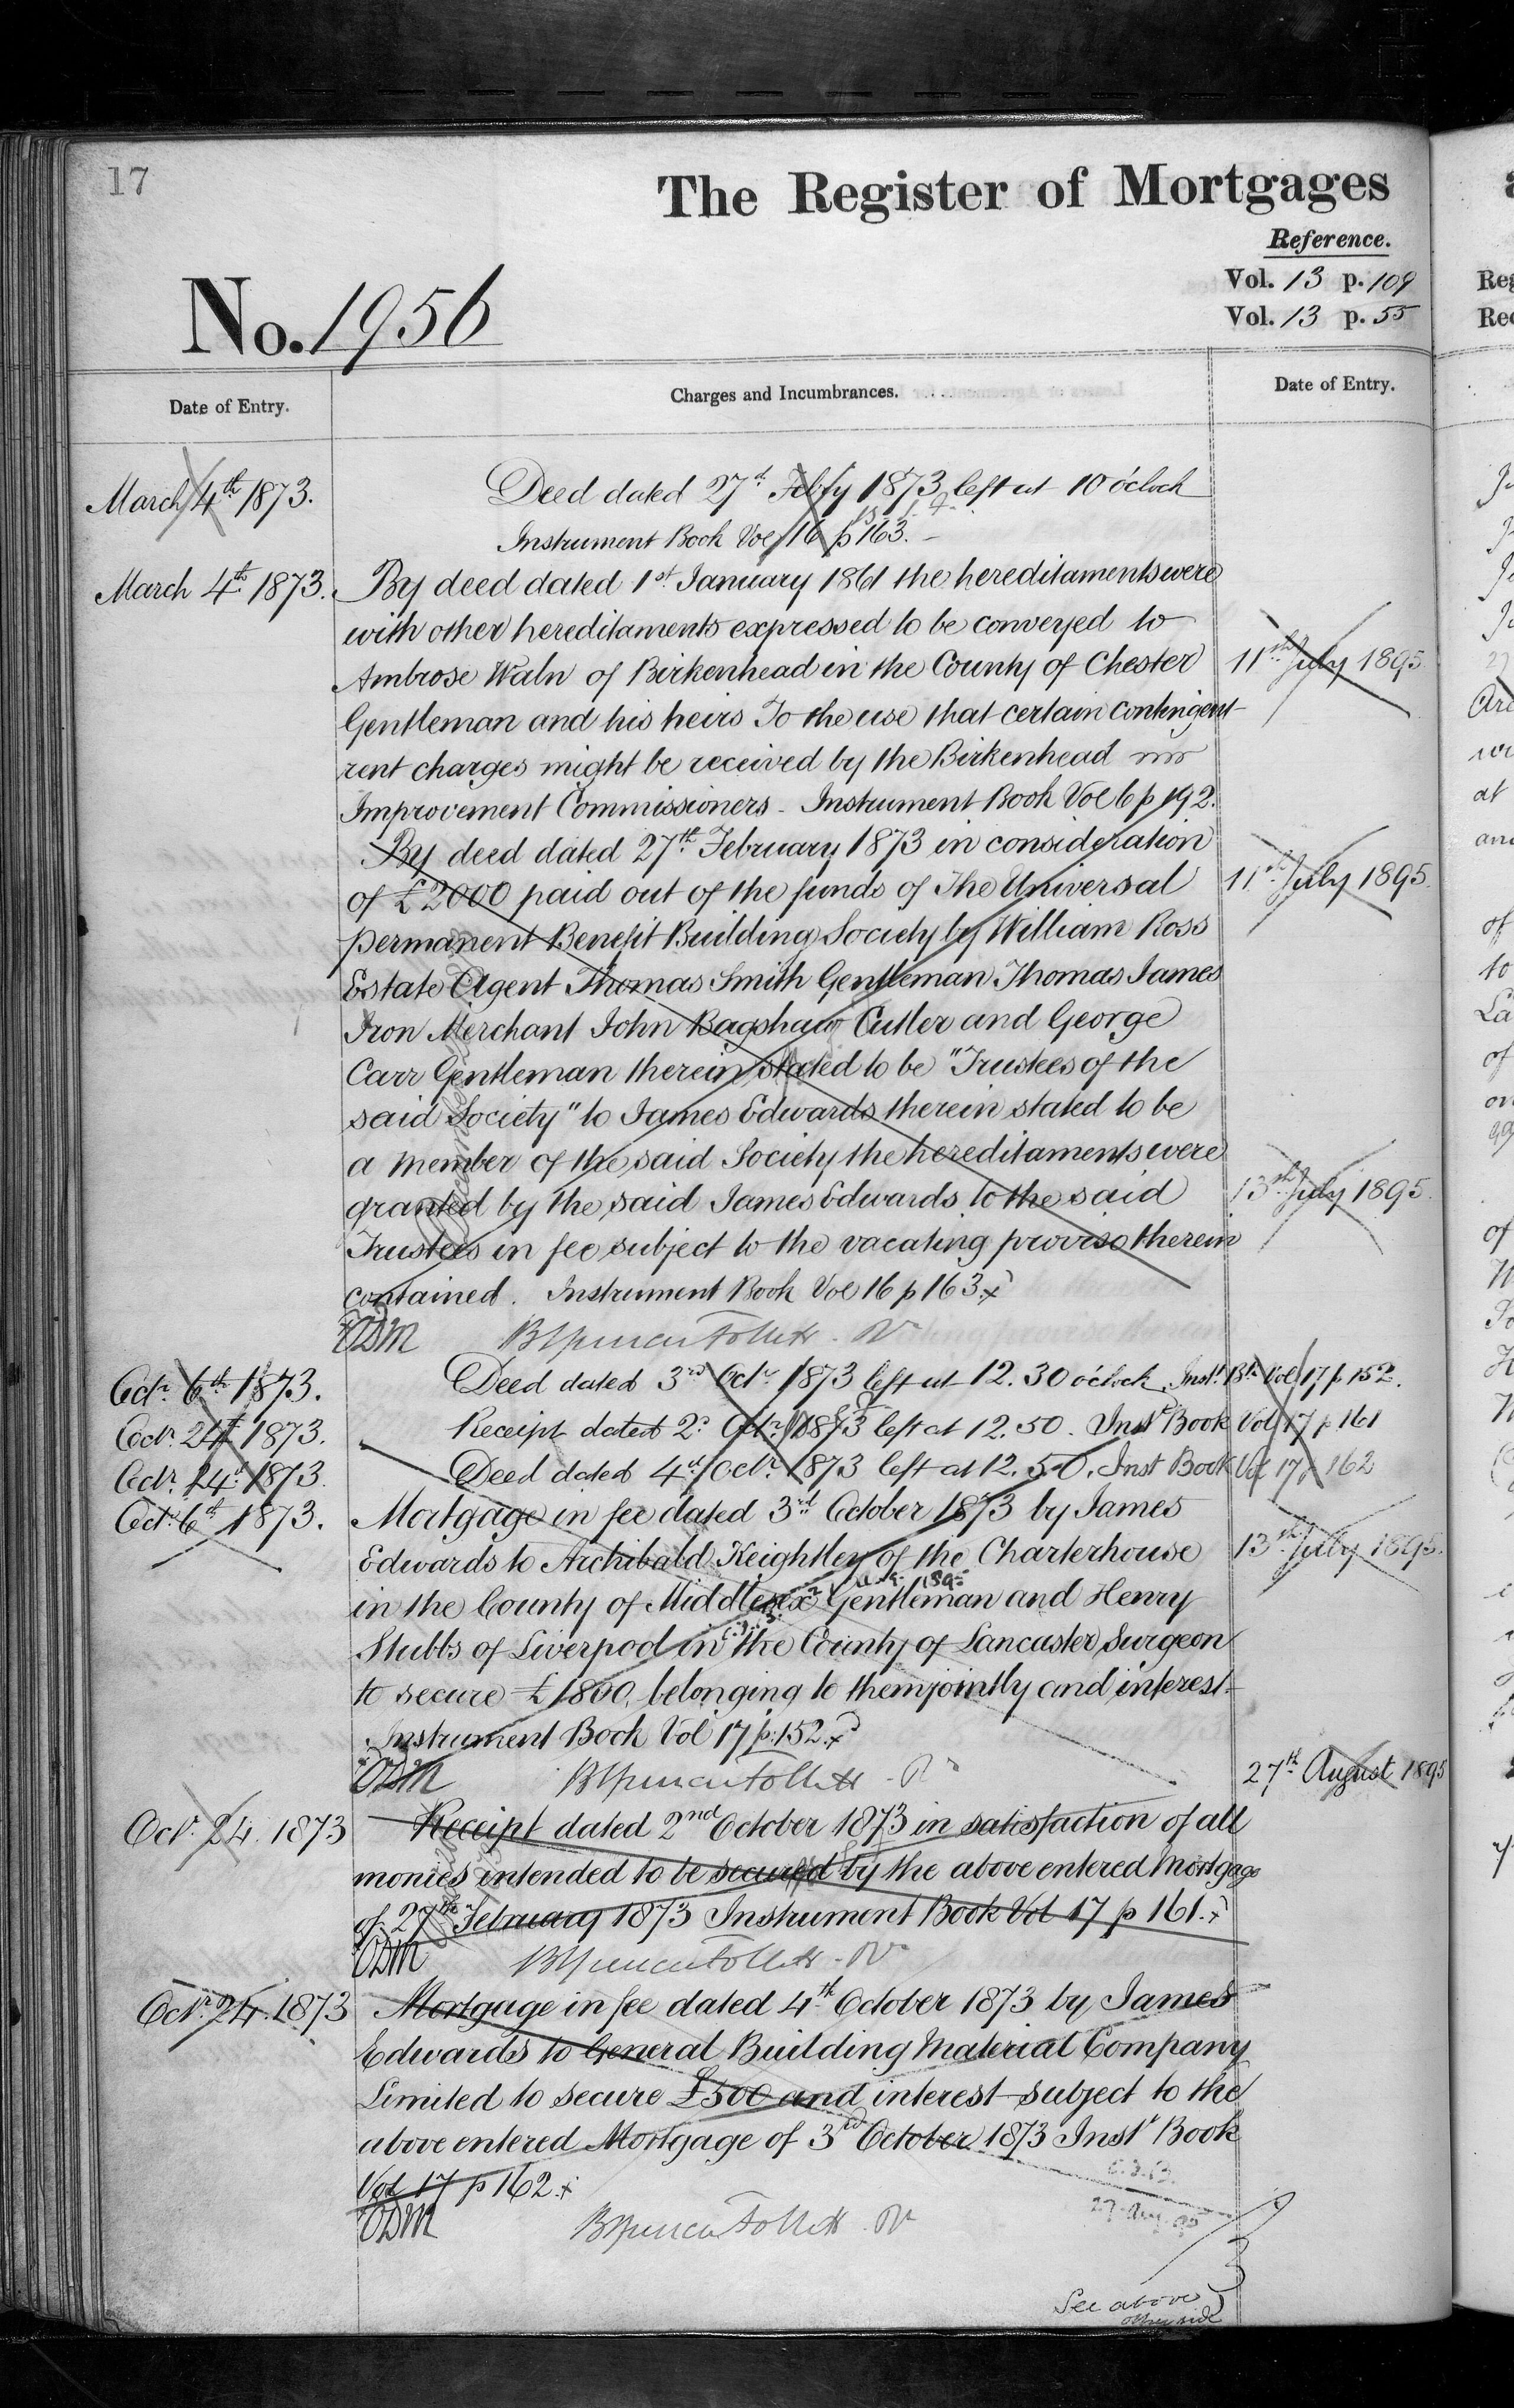 17
The Register of Mortgages
Reference.
Vol. 13 p. 109
Vol. 13 p. 55
No. 1956
Date of Entry.
Charges and Incumbrances.
Date of Entry.
March 4th 1873.
Deed dated 27th Feby 1873 left at 10 o'clock
Instrument Book Vol 16 p 163.
March 4th 1873.
By deed dated 1st January 1861 the hereditaments were
with other hereditaments expressed to be conveyed to
Ambrose Waln of Birkenhead in the County of Chester
11th July 1895.
Gentleman and his heirs To the use that certain contingent
rent charges might be received by the Birkenhead
Improvement Commissioners - Instrument Book Vol 6 p 192.
By deed dated 27th February 1873 in consideration
of £2000 paid out of the funds of The Universal
11th July 1895.
permanent Benefit Building Society by William Ross
Estate Agent Thomas Smith Gentleman Thomas James
Iron Merchant John Bagshaw Cutler and George
Carr Gentleman therein stated to be "Trustees of the
said Society" to James Edwards therein stated to be
a member of the said Society the hereditaments were
granted by the said James Edwards to the said
13th July 1895.
Trustees in fee subject to the vacating proviso therein
contained. Instrument Book Vol 16 p 163.x
ODM
Oct. 6th 1873.
Deed dated 3rd Octr 1873 left at 12.30 o'clock Inst. Bk Vol 17 p 152.
Octr. 24th 1873.
Receipt dated 2d Octr 1873 left at 12.50. Inst Book Vol 17 p 161
Octr. 24th 1873.
Deed dated 4th Octr 1873 left at 12.50. Inst Book Vol 17 p 162
Oct. 6th 1873.
Mortgage in fee dated 3rd October 1873 by James
Edwards to Archibald Keightley of the Charterhouse
13th July 1895.
in the County of Middlesex Gentleman and Henry
Stubbs of Liverpool in the County of Lancaster Surgeon
to secure £1800, belonging to them jointly and interest
Instrument Book Vol 17 p. 152.x
ODM
27th August 1895
Oct. 24. 1873
Receipt dated 2nd October 1873 in satisfaction of all
monies intended to be secured by the above entered Mortgage
of 27th February 1873 Instrument Book Vol 17 p 161.x
ODM
Octr. 24. 1873
Mortgage in fee dated 4th October 1873 by James
Edwards to General Building Material Company
Limited to secure £500 and interest subject to the
above entered Mortgage of 3rd October 1873 Inst Book
Vol 17 p 162.x
27 Aug 95
ODM
See above
other side